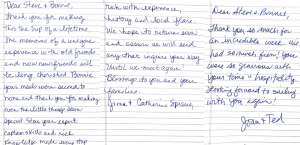 Dear Steve & Bonnie,
Thank you for making
this the trip of a lifetime.
The memories of a unique
experience with old friends
and new new friends will
be long cherished. Bonnie
your meals were second to
none and thank you for making
even the little things seem
special. Steve your expert
captain skills and rich
knowledge made every stop
rich with experience,
history and local flare.
We hope to return soon
and season us will send
any that inquire your way.
Until we meet again!
Blessings to you and your
families.
Jim & Catherine
Dear Steve & Bonnie,
Thank you so much for
an incredible week. We
had so much fun! You
were so gracious with
your time & hospitality.
Looking forward to sailing
with you again!
Joan & Ted